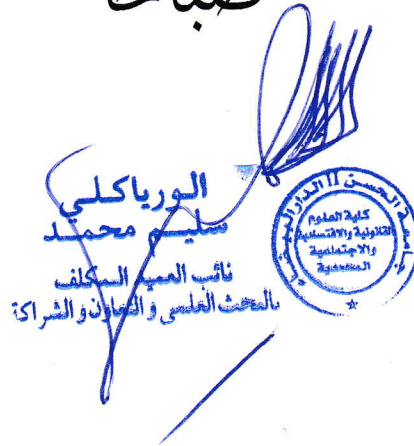 الورياكلي
سليم محمد
نائب العميد المكلف
بالبحث العلمي و التعاون و الشراكة
جامعة الحسن II الدار البيضاء
كلية العلوم
القانونية والاقتصادية
والاجتماعية
المحمدية